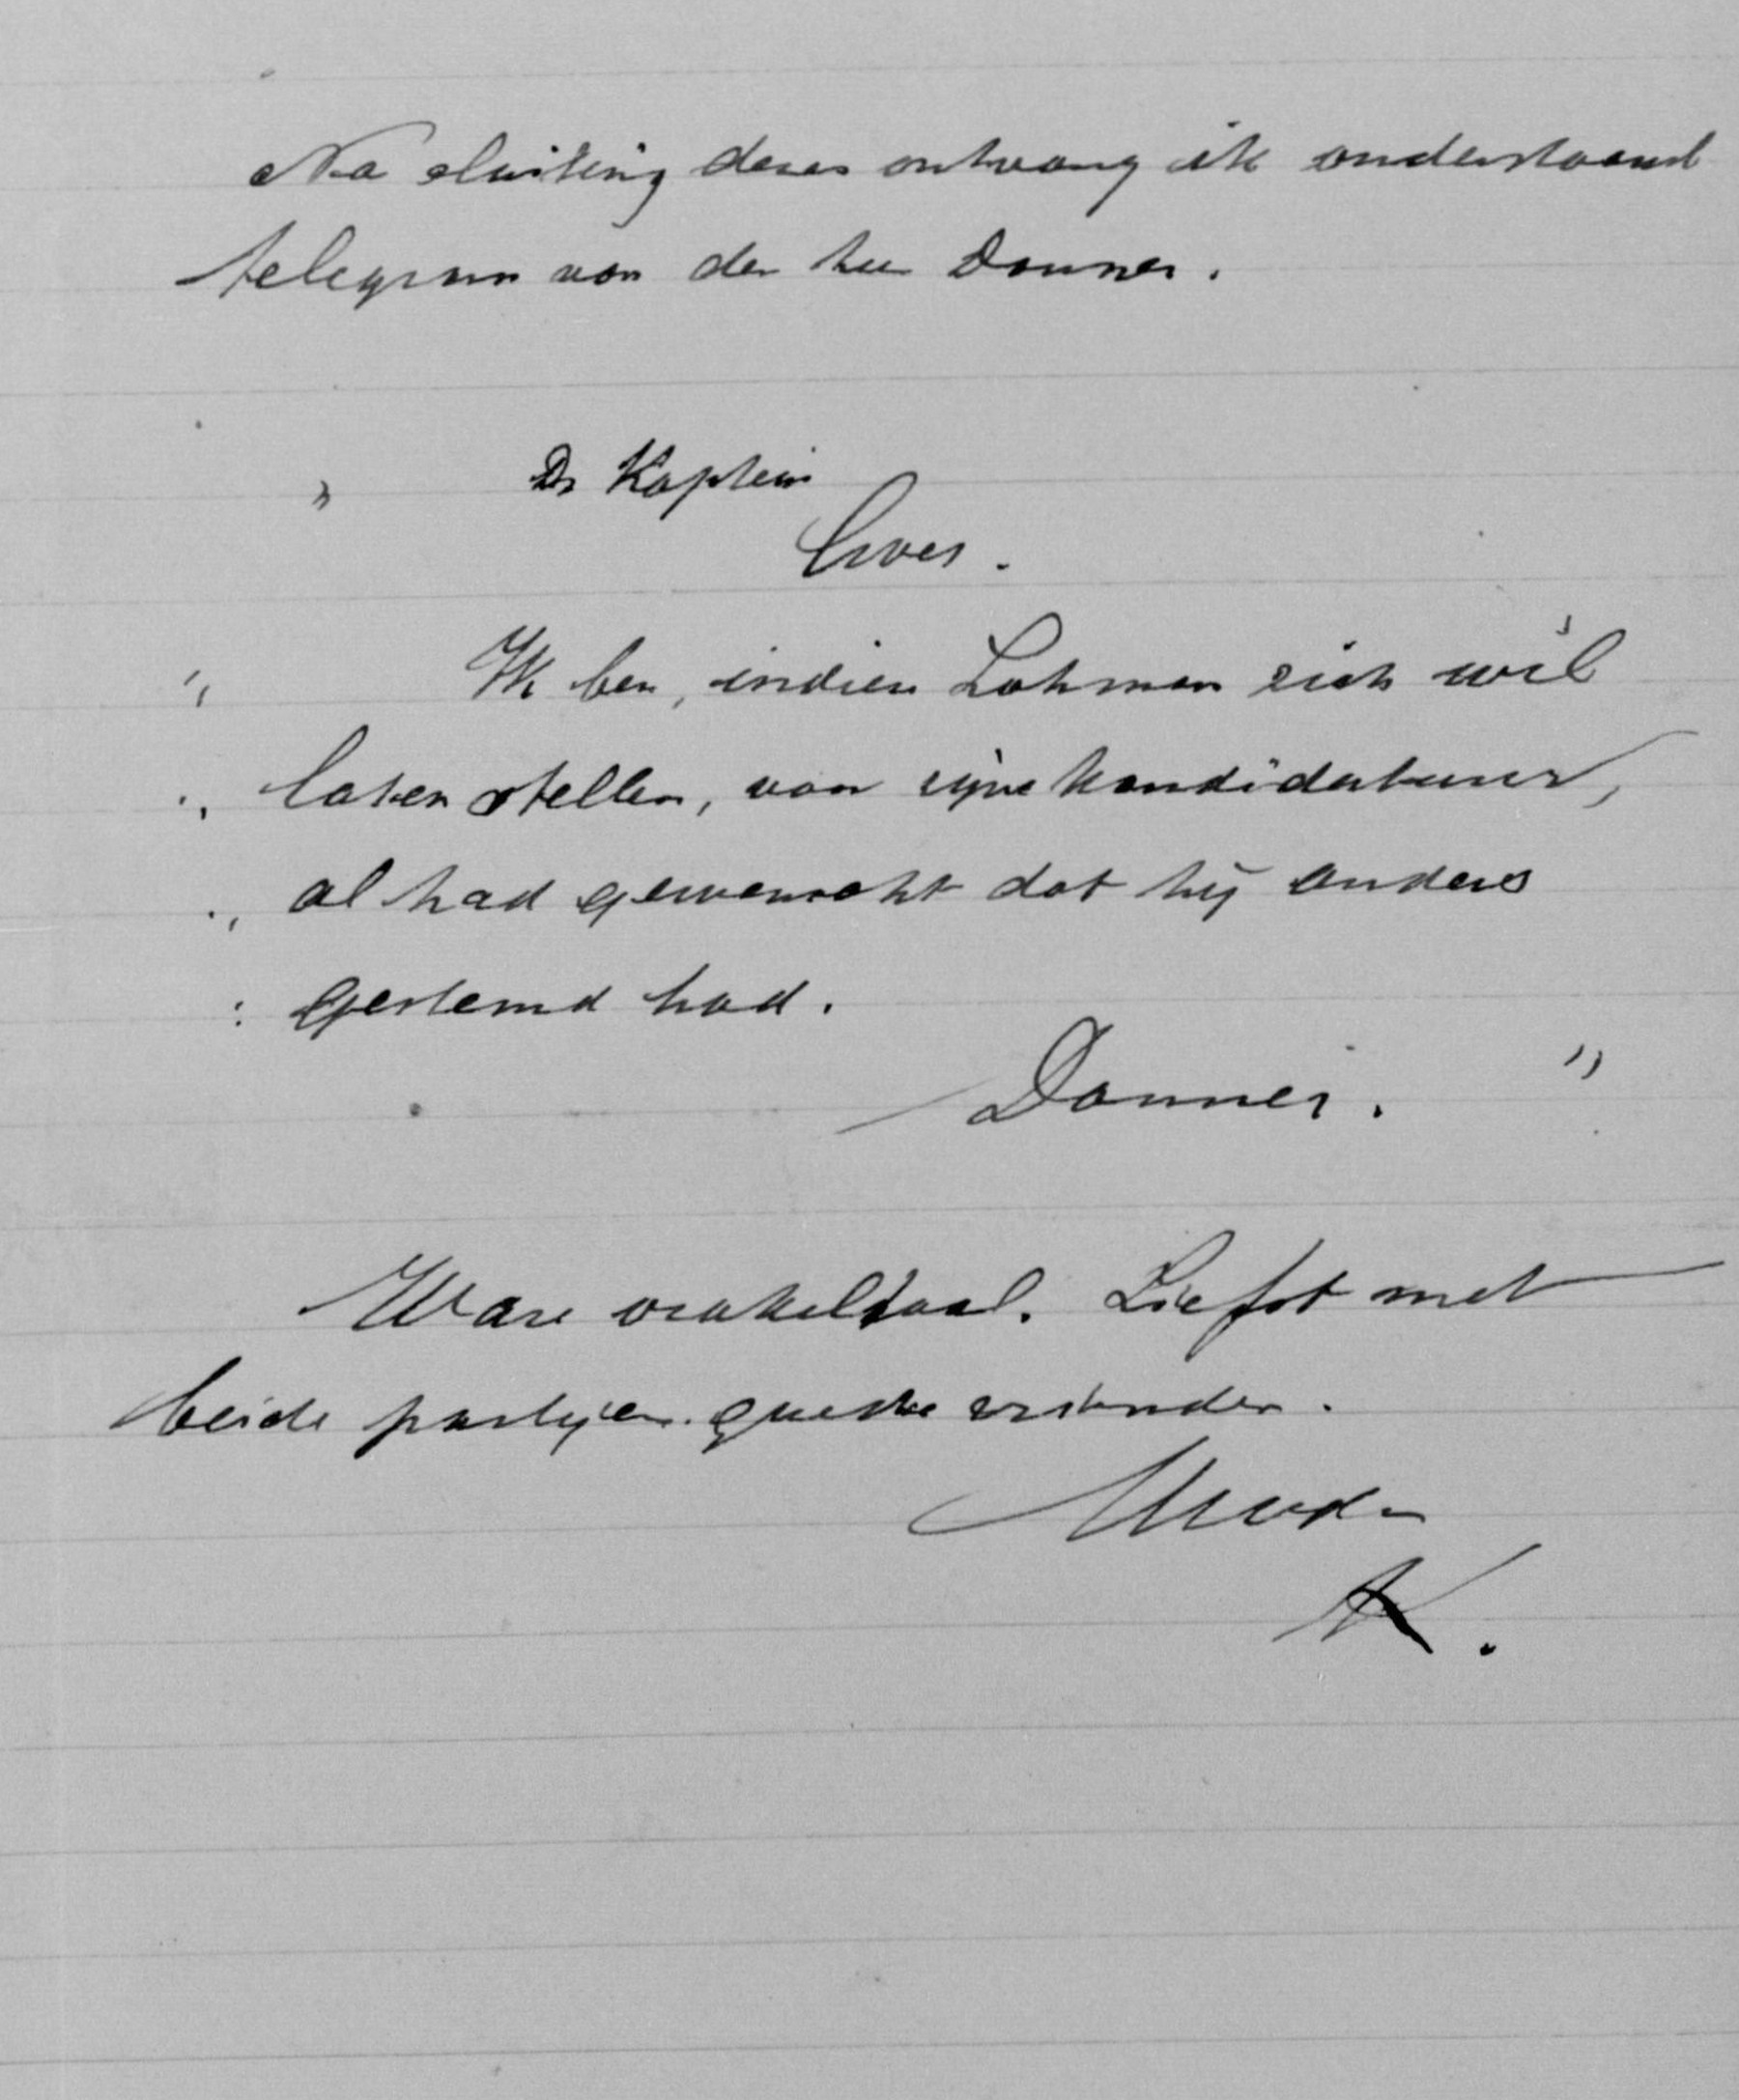 Na sluiting dezes ontvang ik onderstaand
telegram van den heer Donner.
" Dr Kaptein
Goes.
" Ik ben, indien Lohman zich wil
" laten stellen, voor zijne kandidatuur,
" al had gewenscht dat hij anders
" gestemd had.
Donner. "
Ware orakeltaal. Liefst met
beide partijen goede vrienden.
K.